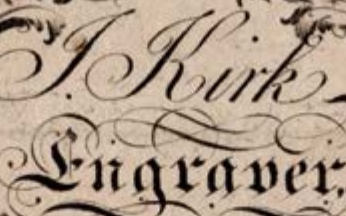 J. Kirk
Engraver,